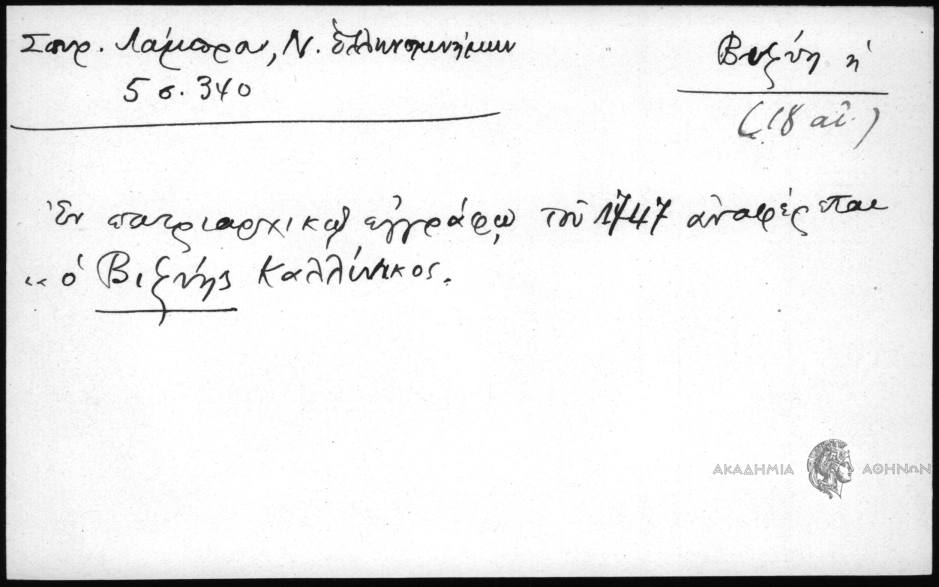 Σπυρ. Λάμπρου, Ν. Ἑλληνομνήμων
5 σ. 340
Βιζύη ἡ
(18 αἰ.)
Ἐν πατριαρχικῷ ἐγγράφῳ τοῦ 1747 ἀναφέρεται
„ ὁ Βιζύης Καλλίνικος.
ΑΚΑΔΗΜΙΑ ΑΘΗΝΩΝ